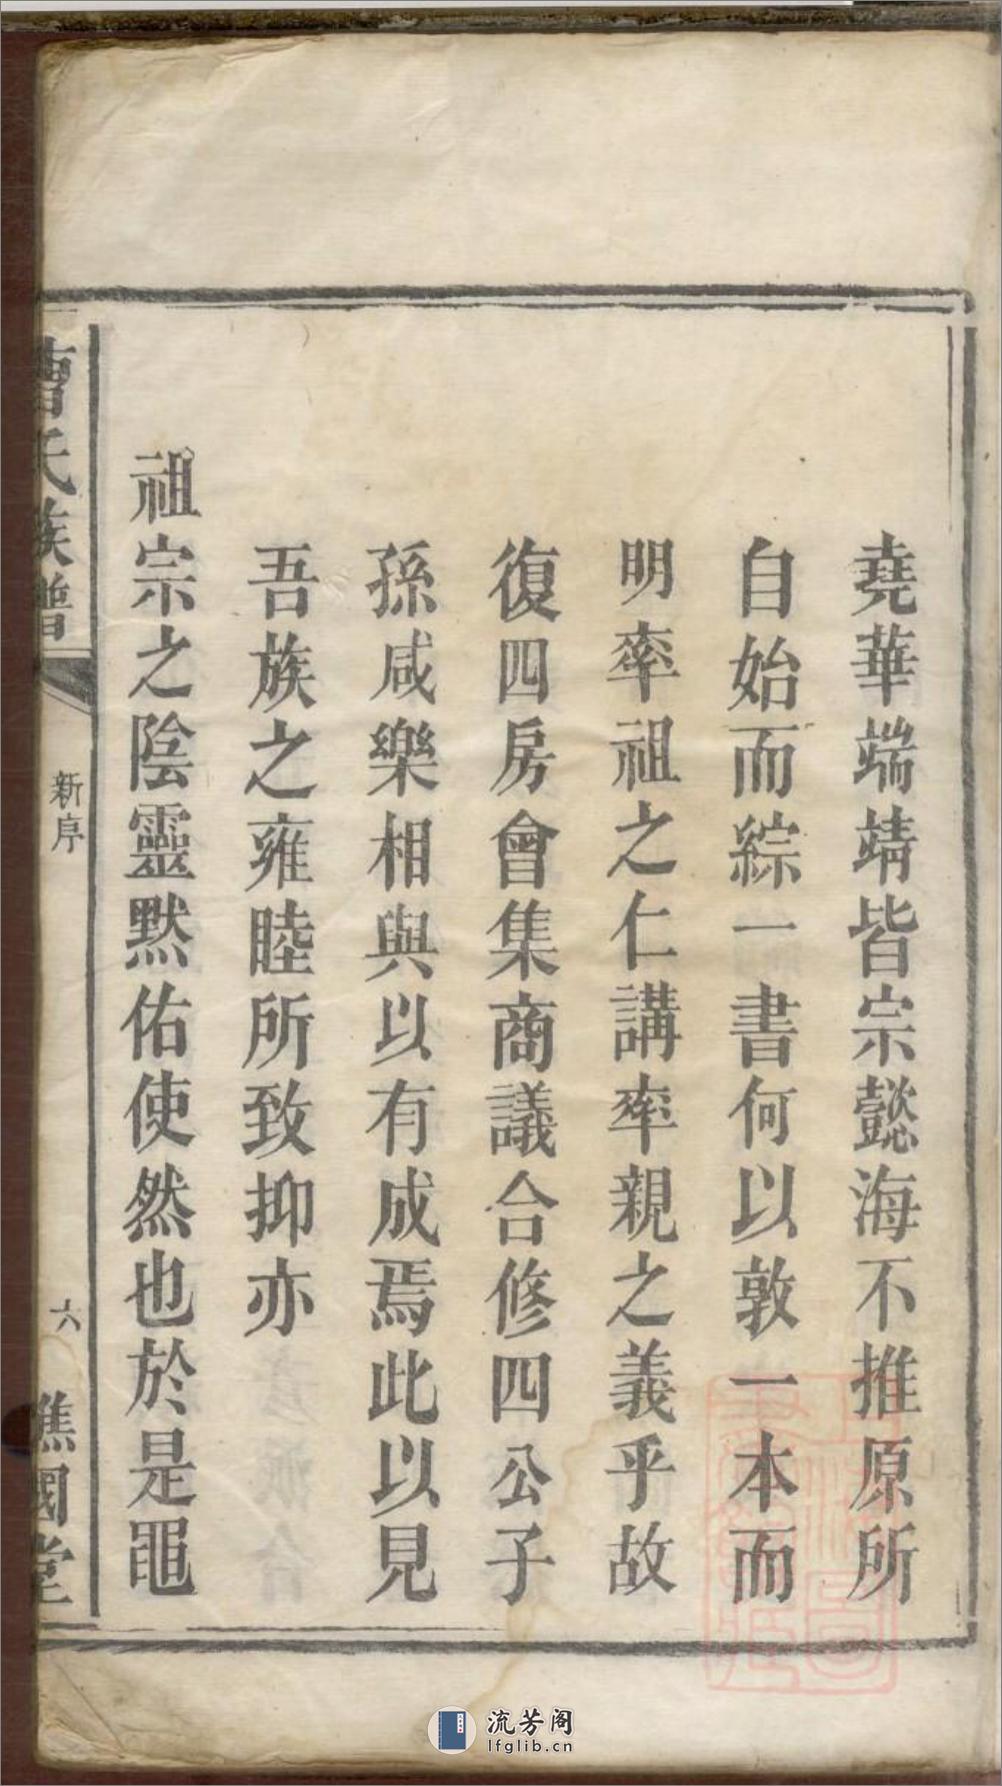 堯華端靖皆宗懿海不推原所
自始而綜一書何以敦一本而
明率祖之仁講率親之義乎故
復四房會集商議合修四公子
孫咸樂相與以有成焉此以見
吾族之雍睦所致抑亦
祖宗之陰靈默佑使然也於是黽
曹氏族譜
新序
六
譙國堂
流芳阁
lfglib.cn